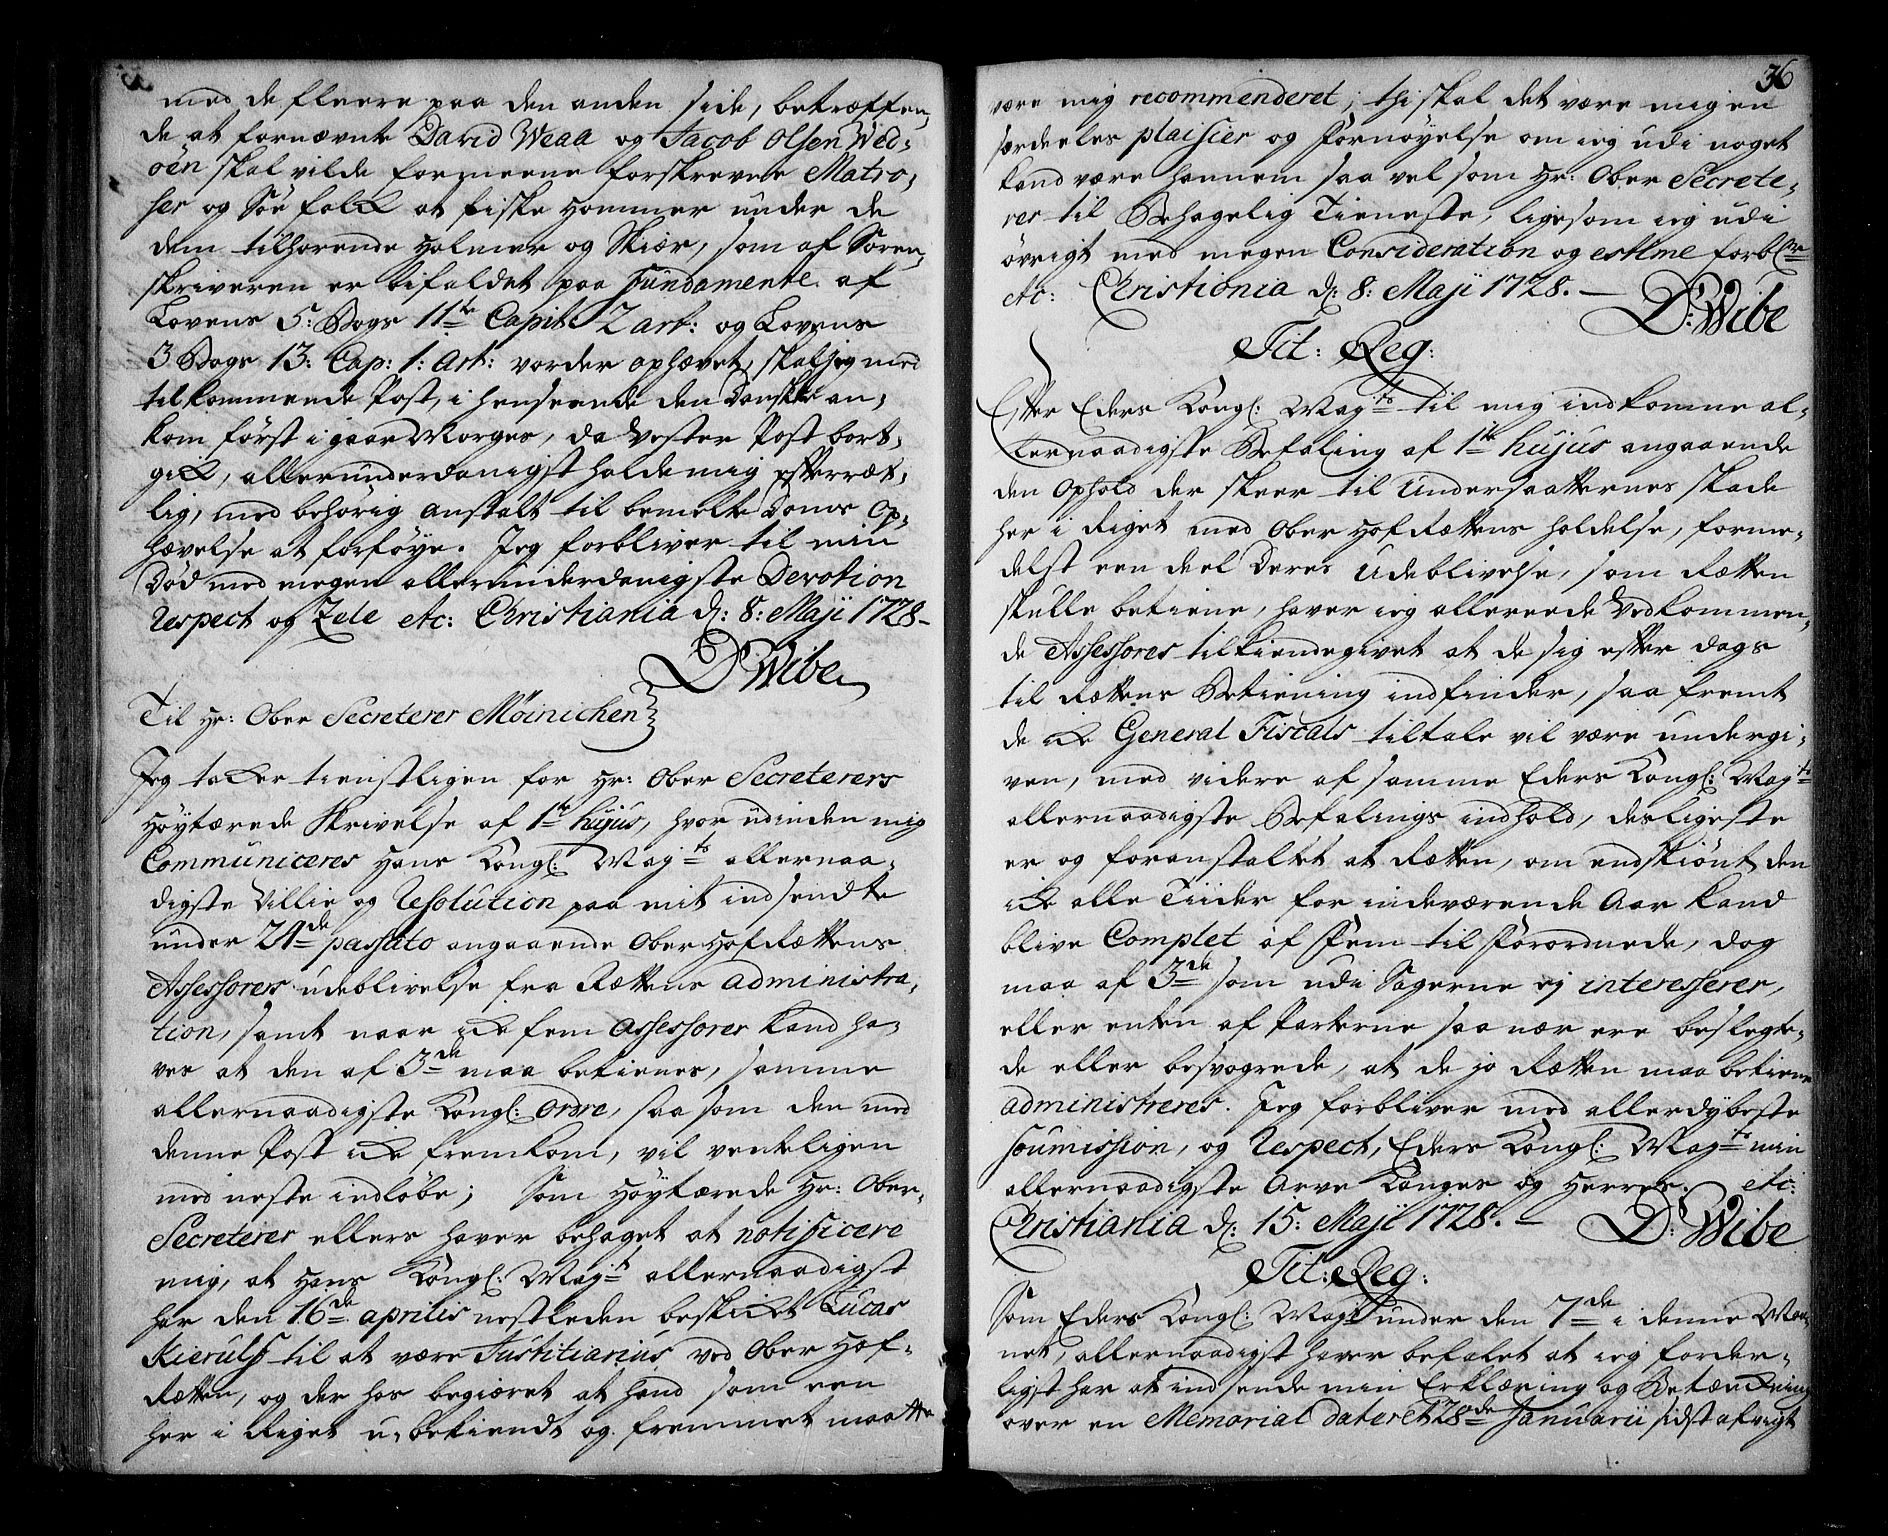 med de fleere paa den anden side, betræffen,
de at fornævnte David Weaa og Jacob Olsen Wed=
öen skal vilde formeene forskrevene Matro,
ser og Söe folck at fiske Hommer under de
dem tilhörende Holmer og Skiær, som af Soren,
skriveren er bifaldet paa fundamente af
Lovens 5: Bogs 11te Capit: 2 art: og Lovens
3 Bogs 13: Cap: 1: Art: vorder ophævet, skal jeg med
tilkommende Post, i henseende den Danske an,
kom först i gaar Morges, da Vester Post bort,
gick, allerunderdanigst holde mig efterræt,
lig, med behörig anstalt til bemelte Doms Op,
hævelse at forföye. Jeg forbliver til min
Död med megen allerunderdanigste Devotion
Respect og Zele etc: Christiania d: 8: Maji 1728 –
D Wibe
Til Hr: Ober Secreterer Möinichen
Jeg tacker tienstligen for Hr: Ober Secreterers
Höytærede Skrivelse af 1te hujus, hvor udinden mig
Communiceres Hans Kongl: Mayts allernaa,
digste Villie og Resolution paa mit indsendte
under 24de passato angaaende Ober Hof Rættens
Assessorers udeblivelse fra Rættens administra,
tion, samt naar icke fem Assessorer kand ha,
ves at den af 3de maa betienes, samme
allernaadigste Kongl: Ordre, saa som den med
denne Post icke fremkom, vil venteligen
med neste indlöbe; Som Höytærede Hr: Ober,
Secreterer ellers haver behaget at notificere
mig, at Hans Kongl: Mayt allernaadigst
har den 16de aprilis nestleden beskicket Lucas
Kierulf til at være Justitiarius ved Ober Hof,
Rætten, og der hos begiæret at hand som een
her i Riget u,bekiendt og fremmet maatte
36
være mig recommenderet; thi skal det være mig en
særdeeles plaisier og Fornöyelse om ieg udi noget
kand være hannem saa vel som Hr: Ober Secrete,
rer til Behagelig Tieneste, ligesom ieg udi
övrigt med megen Consideration og estime forblr
etc: Christiania d: 8: Maji 1728. –
D: Wibe
Tit: Reg:
Efter Eders Kongl: Mayts til mig indkomne al,
lernaadigste Befaling af 1te hujus angaaende
den Ophold der skeer til Undersaatternes skade
her i Riget med Ober Hof Rættens holdelse, forme,
delst een deel Deres Udeblivelse, som Rætten
skulle betiene, haver ieg allereede Vedkommen,
de Assessores tilkiendegivet at de sig efter dags
til Rættens Betiening indfinder, saa fremt
de icke General Fiscals tiltale vil være undergi,
ven, med videre af samme Eders Kongl: Mayts
allernaadigste Befalings indhold, desligeste
er og foranstaltet at Rætten, om endskiönt den
icke alle Tiider for indeværende Aar kand
blive Complet af Fem til Forordnede, dog
maa af 3de som udi Sagerne ej interesserer,
eller enten af Parterne saa nær ere beslegte,
de eller besvogrede, at de jo Rætten maa betiene
administreres. Jeg forbliver med allerdybeste
soumission, og Respect, Eders Kongl: Mayts min
allernaadigste Arve Konges og Herres. etc:
Christiania d: 15: Maji 1728. –
D: Wibe
Tit: Reg:
Som Eders Kongl: Mayt under den 7de i denne Maa,
net, allernaadigst haver befalet at ieg forder,
ligst har at indsende min Erklæring og Betænkning
over en Memorial dateret 28de Januarii sidst afvigt